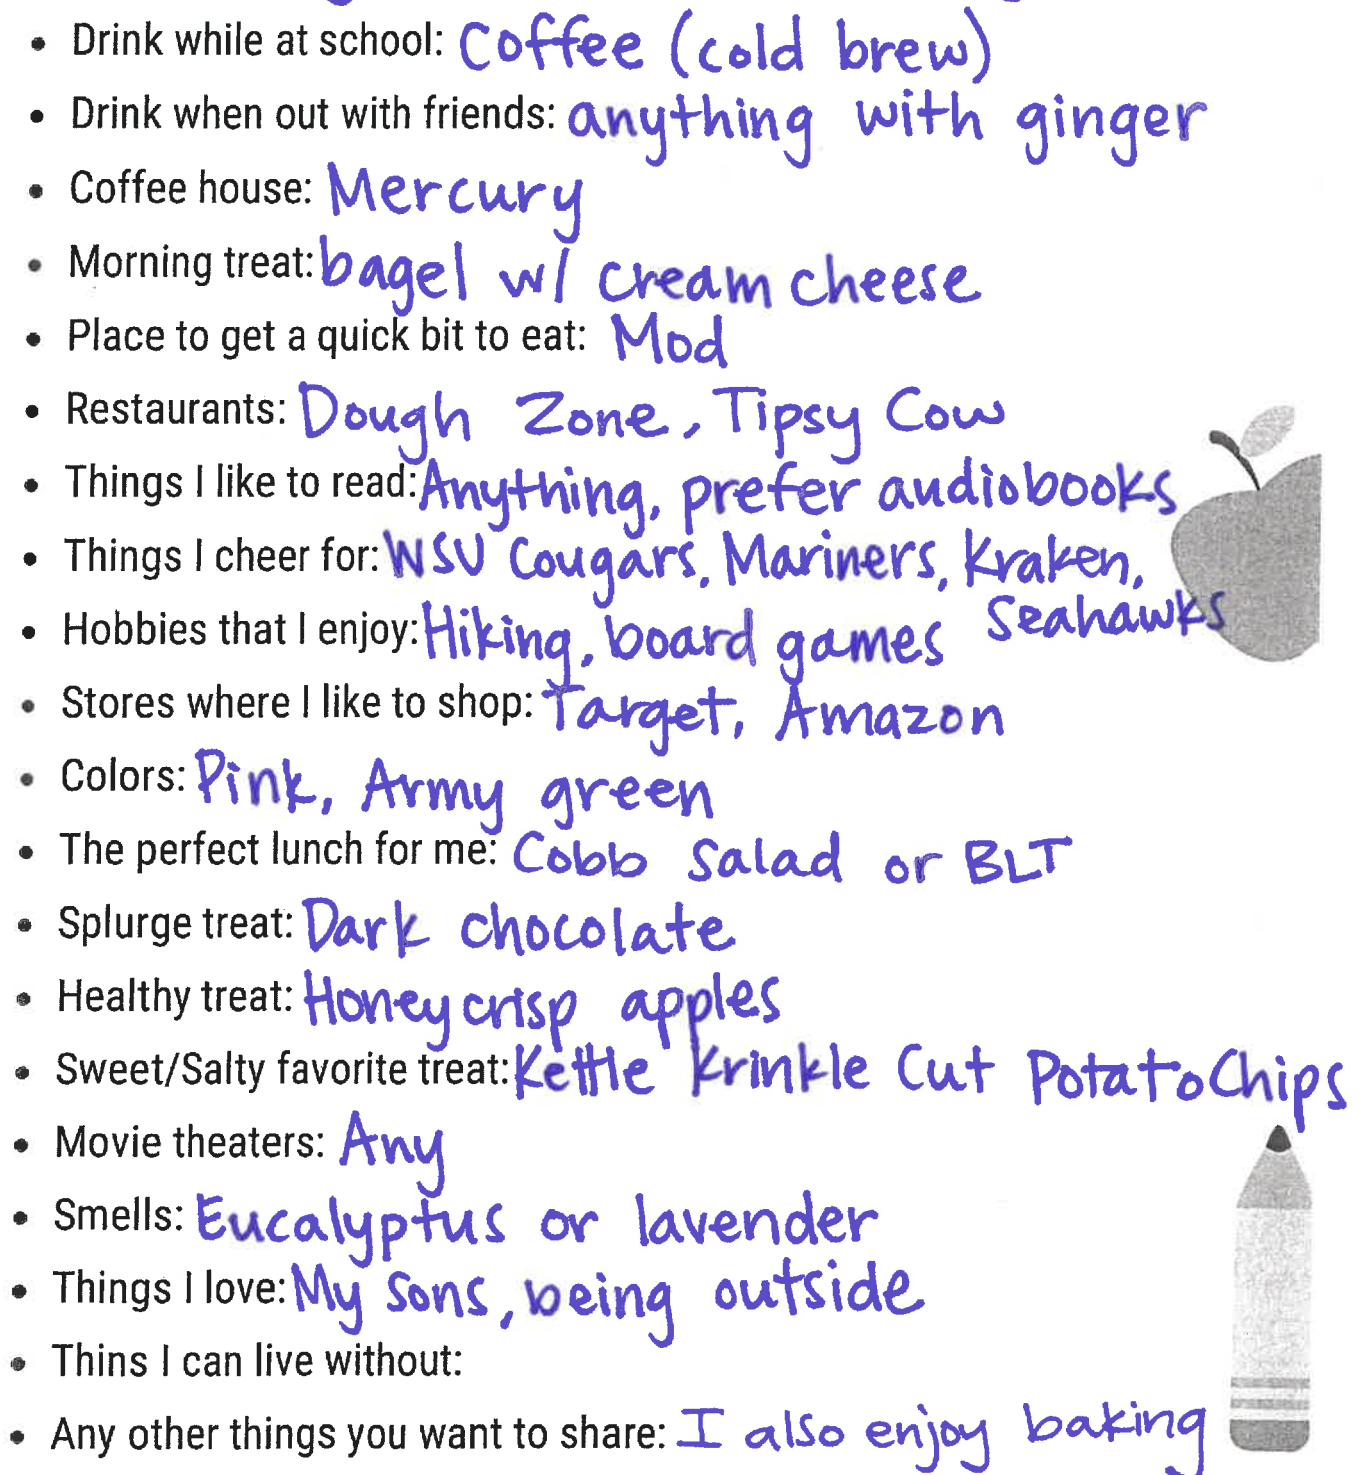 • Drink while at school: Coffee (cold brew)
• Drink when out with friends: anything with ginger
• Coffee house: Mercury
• Morning treat: bagel w/ cream cheese
• Place to get a quick bit to eat: Mod
• Restaurants: Dough Zone, Tipsy Cow
• Things I like to read: Anything, prefer audiobooks
• Things I cheer for: WSU Cougars, Mariners, Kraken,
Seahawks
• Hobbies that I enjoy: Hiking, board games
• Stores where I like to shop: Target, Amazon
• Colors: Pink, Army green
• The perfect lunch for me: Cobb Salad or BLT
• Splurge treat: Dark chocolate
• Healthy treat: Honeycrisp apples
• Sweet/Salty favorite treat: Kettle Krinkle Cut Potato Chips
• Movie theaters: Any
• Smells: Eucalyptus or lavender
• Things I love: My Sons, being outside
• Thins I can live without:
• Any other things you want to share: I also enjoy baking